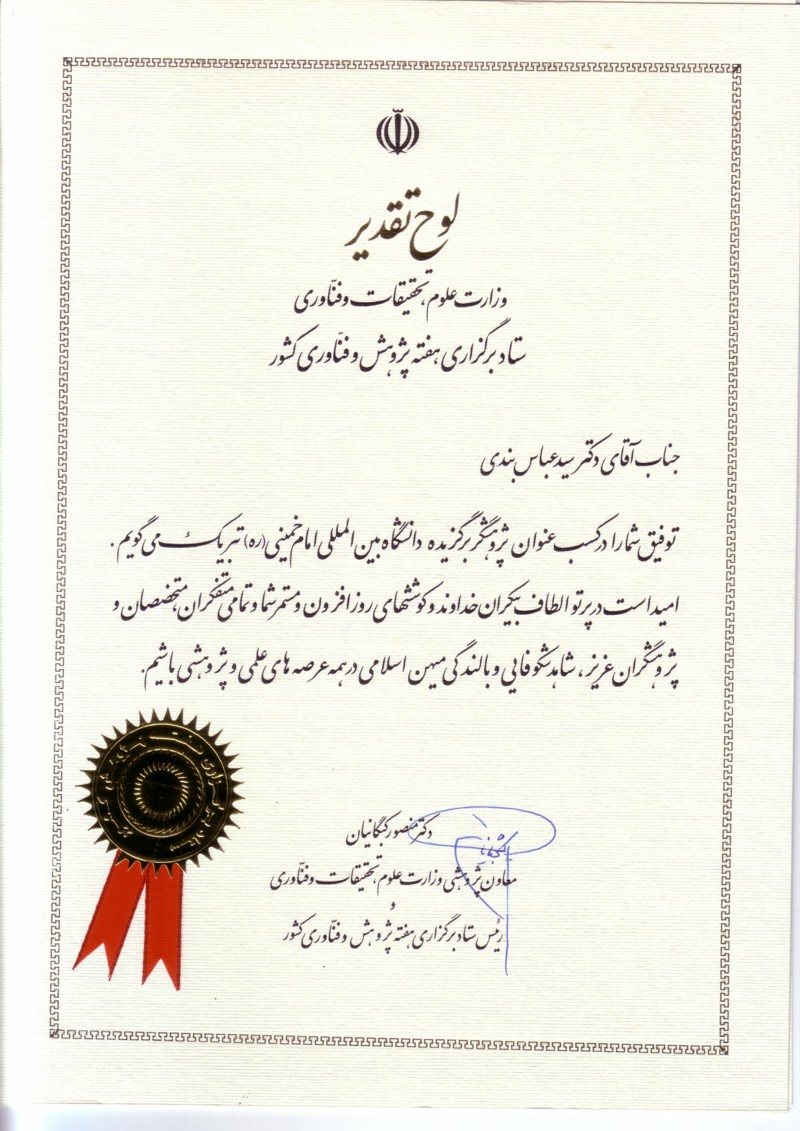 لوح تقدیر
وزارت علوم، تحقیقات و فنّاوری
ستاد برگزاری هفته پژوهش و فنّاوری کشور
جناب آقای دکتر سید عباس بندی
توفیق شما را در کسب عنوان پژوهشگر برگزیده دانشگاه بین المللی امام خمینی (ره) تبریک می گویم.
امید است در پرتو الطاف بیکران خداوند و کوششهای روزافزون و مستمر شما و تمامی متفکران، متخصصان و
پژوهشگران عزیز، شاهد شکوفایی و بالندگی میهن اسلامی در همه عرصه های علمی و پژوهشی باشیم.
دکتر منصور کبگانیان
معاون پژوهشی وزارت علوم، تحقیقات و فنّاوری
و
رئیس ستاد برگزاری هفته پژوهش و فنّاوری کشور